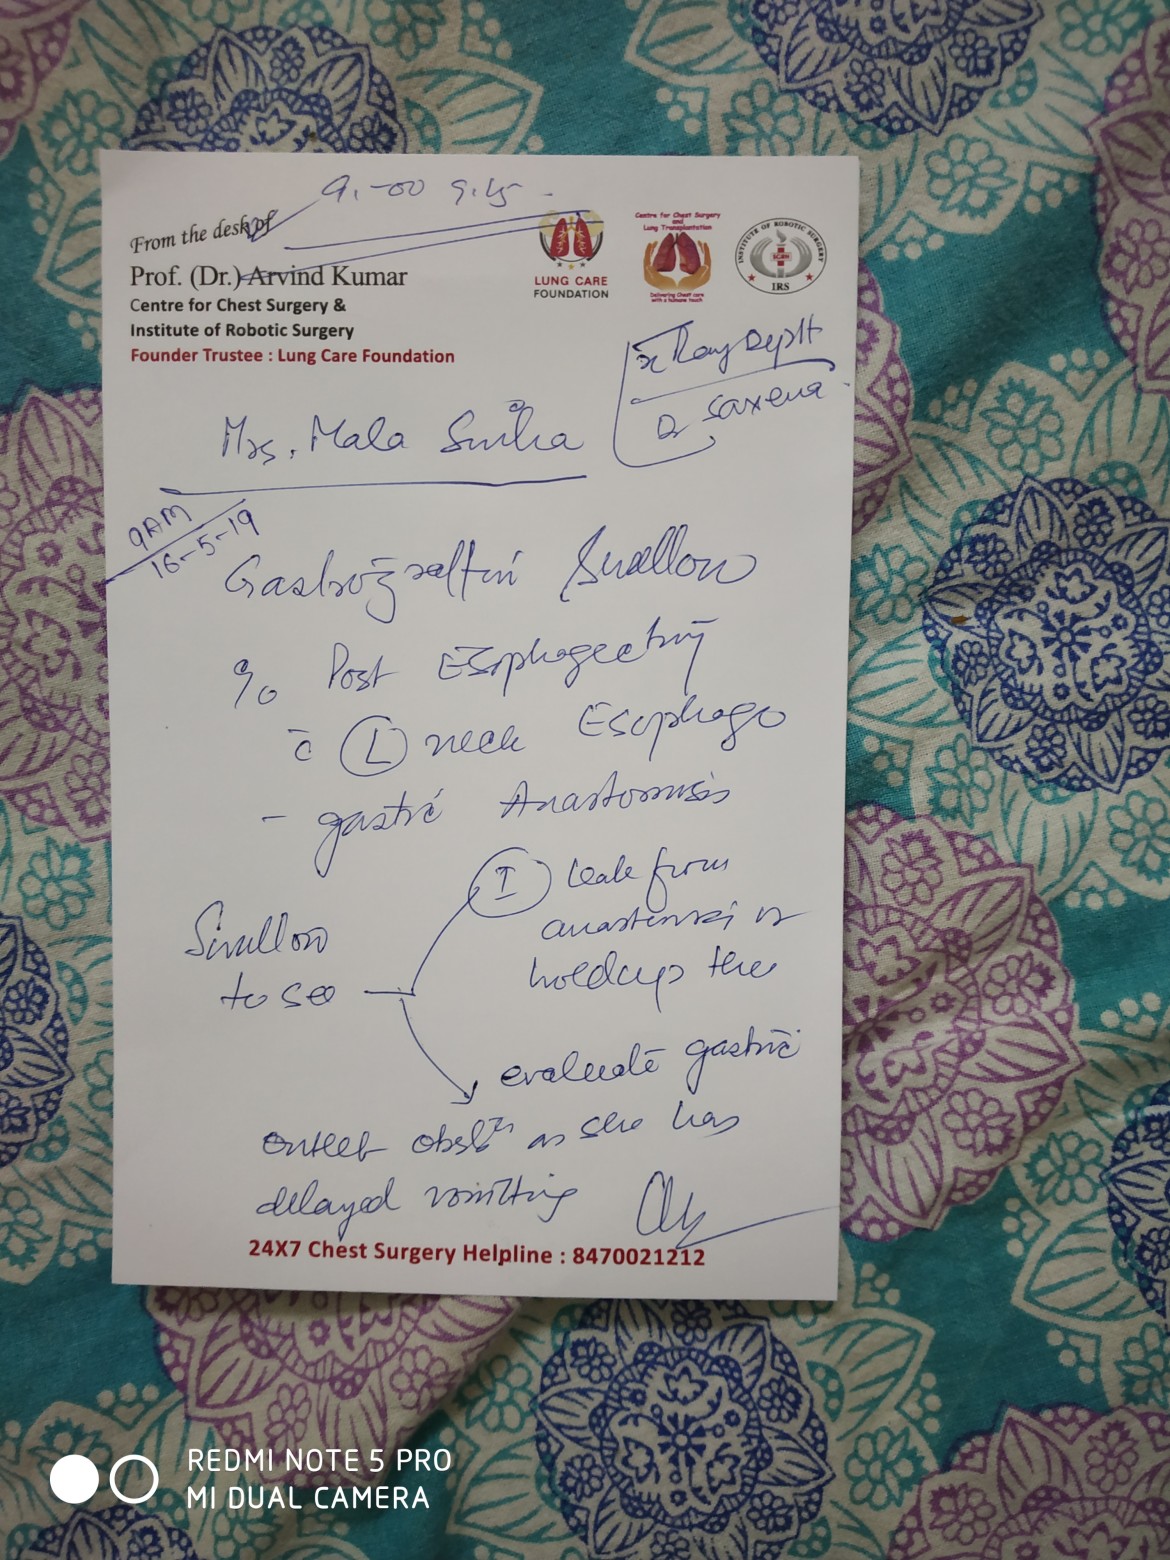 9.-00 9.15 -
From the desk of
Prof. (Dr.) Arvind Kumar
Centre for Chest Surgery &
Institute of Robotic Surgery
Founder Trustee : Lung Care Foundation
LUNG CARE
FOUNDATION
Centre for Chest Surgery
and
Lung Transplantation
Delivering Chest care
with a humane touch
INSTITUTE OF ROBOTIC SURGERY
IRS
X Ray Deptt
Dr Saxena
Mrs. Mala Sinha
9AM
16-5-19
Gastrografin Swallow
Post Esophagectomy
c̄ (L) neck Esophago
- gastric Anastomosis
Swallow
to see
(I) leak from
anastomosis or
holdup there
evaluate gastric
outlet obstn as she has
delayed vomitting
24X7 Chest Surgery Helpline : 8470021212
REDMI NOTE 5 PRO
MI DUAL CAMERA